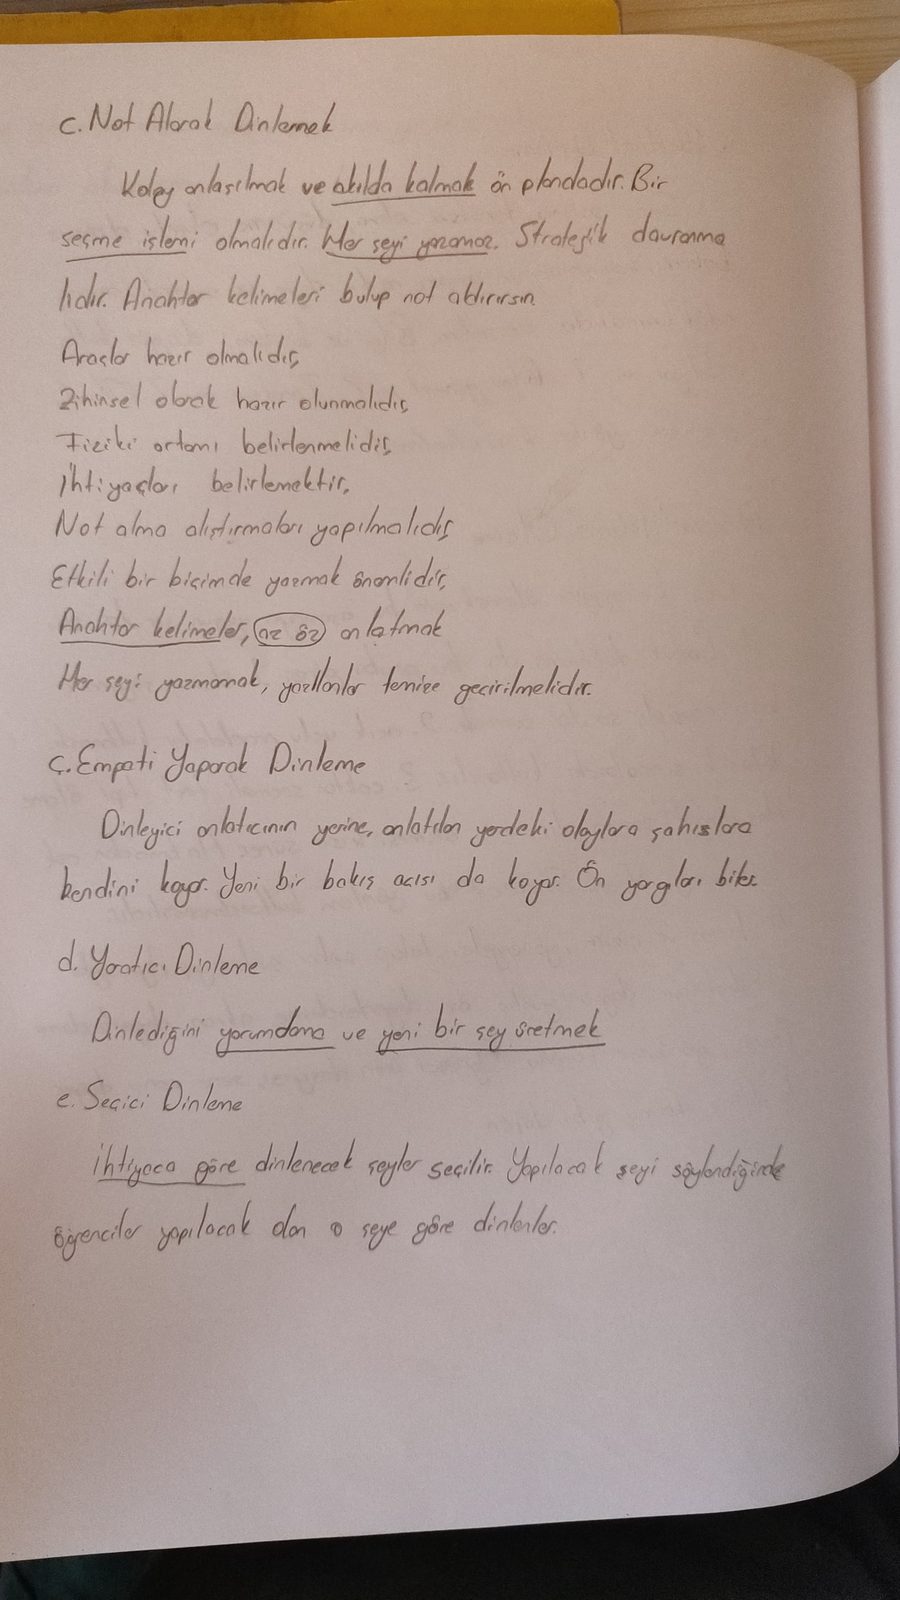 c. Not Alarak Dinlemek
Kolay anlaşılmak ve akılda kalmak ön plandadır. Bir
seçme işlemi olmalıdır. Her şeyi yazamaz. Stratejik davranma
lıdır. Anahtar kelimeleri bulup not aldırırsın.
Araçlar hazır olmalıdır,
Zihinsel olarak hazır olunmalıdır,
Fiziki ortamı belirlenmelidir,
İhtiyaçları belirlemektir,
Not alma alıştırmaları yapılmalıdır,
Etkili bir biçimde yazmak önemlidir,
Anahtar kelimeler, az öz anlatmak
Her şeyi yazmamak, yazılanlar temize geçirilmelidir.
ç. Empati Yaparak Dinleme
Dinleyici anlatıcının yerine, anlatılan yerdeki olaylara şahıslara
kendini koyar. Yeni bir bakış açısı da koyar. Ön yargıları biter.
d. Yaratıcı Dinleme
Dinlediğini yorumlama ve yeni bir şey üretmek
e. Seçici Dinleme
İhtiyaca göre dinlenecek şeyler seçilir. Yapılacak şeyi söylendiğinde
öğrenciler yapılacak olan o şeye göre dinlenler.